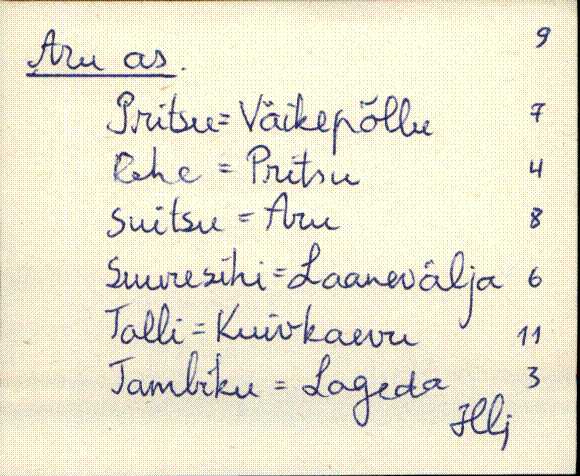 Aru as. 9
Pritsu = Väikepõllu 7
Rehe = Pritsu 4
Suitsu = Aru 8
Suuresihi = Laanevälja 6
Talli = Kuivkaevu 11
Tambiku = Lageda 3
Hlj